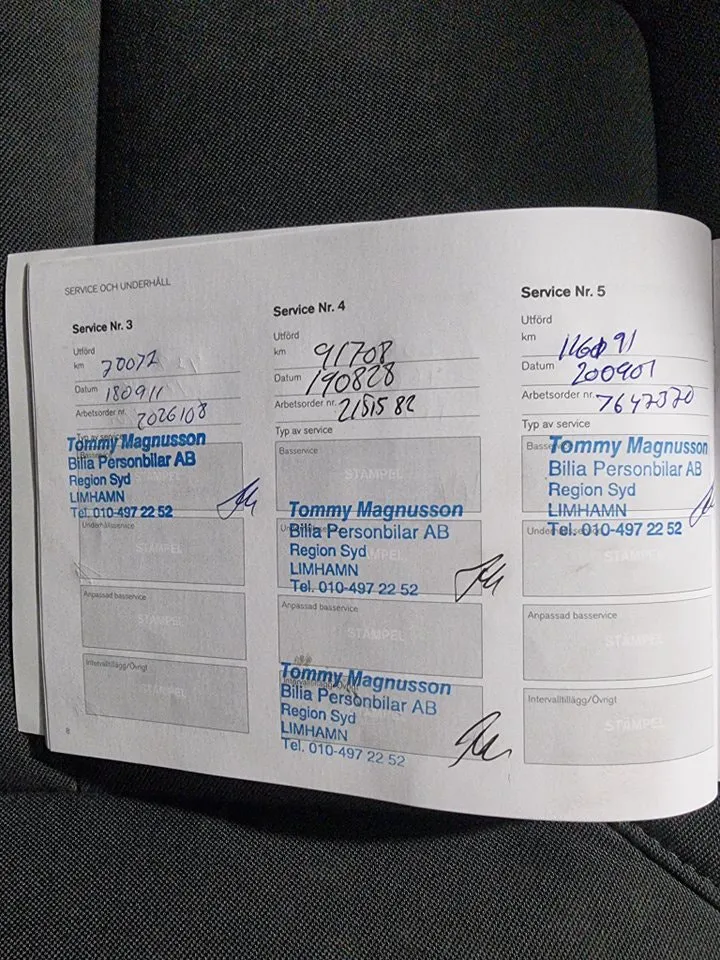 SERVICE OCH UNDERHÅLL
Service Nr. 3
Utförd
km 70072
Datum 180911
Arbetsorder nr. 2026108
Typ av service
Basservice
STÄMPEL
Tommy Magnusson
Bilia Personbilar AB
Region Syd
LIMHAMN
Tel. 010-497 22 52
Underhållsservice
STÄMPEL
Anpassad basservice
STÄMPEL
Intervalltillägg/Övrigt
STÄMPEL
8
Service Nr. 4
Utförd
km 91708
Datum 190828
Arbetsorder nr. 2151582
Typ av service
Basservice
STÄMPEL
Tommy Magnusson
Bilia Personbilar AB
Region Syd
LIMHAMN
Tel. 010-497 22 52
Anpassad basservice
STÄMPEL
Intervalltillägg/Övrigt
Tommy Magnusson
Bilia Personbilar AB
Region Syd
LIMHAMN
Tel. 010-497 22 52
Service Nr. 5
Utförd
km 116091
Datum 200901
Arbetsorder nr. 7647370
Typ av service
Basservice
Tommy Magnusson
Bilia Personbilar AB
Region Syd
LIMHAMN
Tel. 010-497 22 52
Underhållsservice
STÄMPEL
Anpassad basservice
STÄMPEL
Intervalltillägg/Övrigt
STÄMPEL